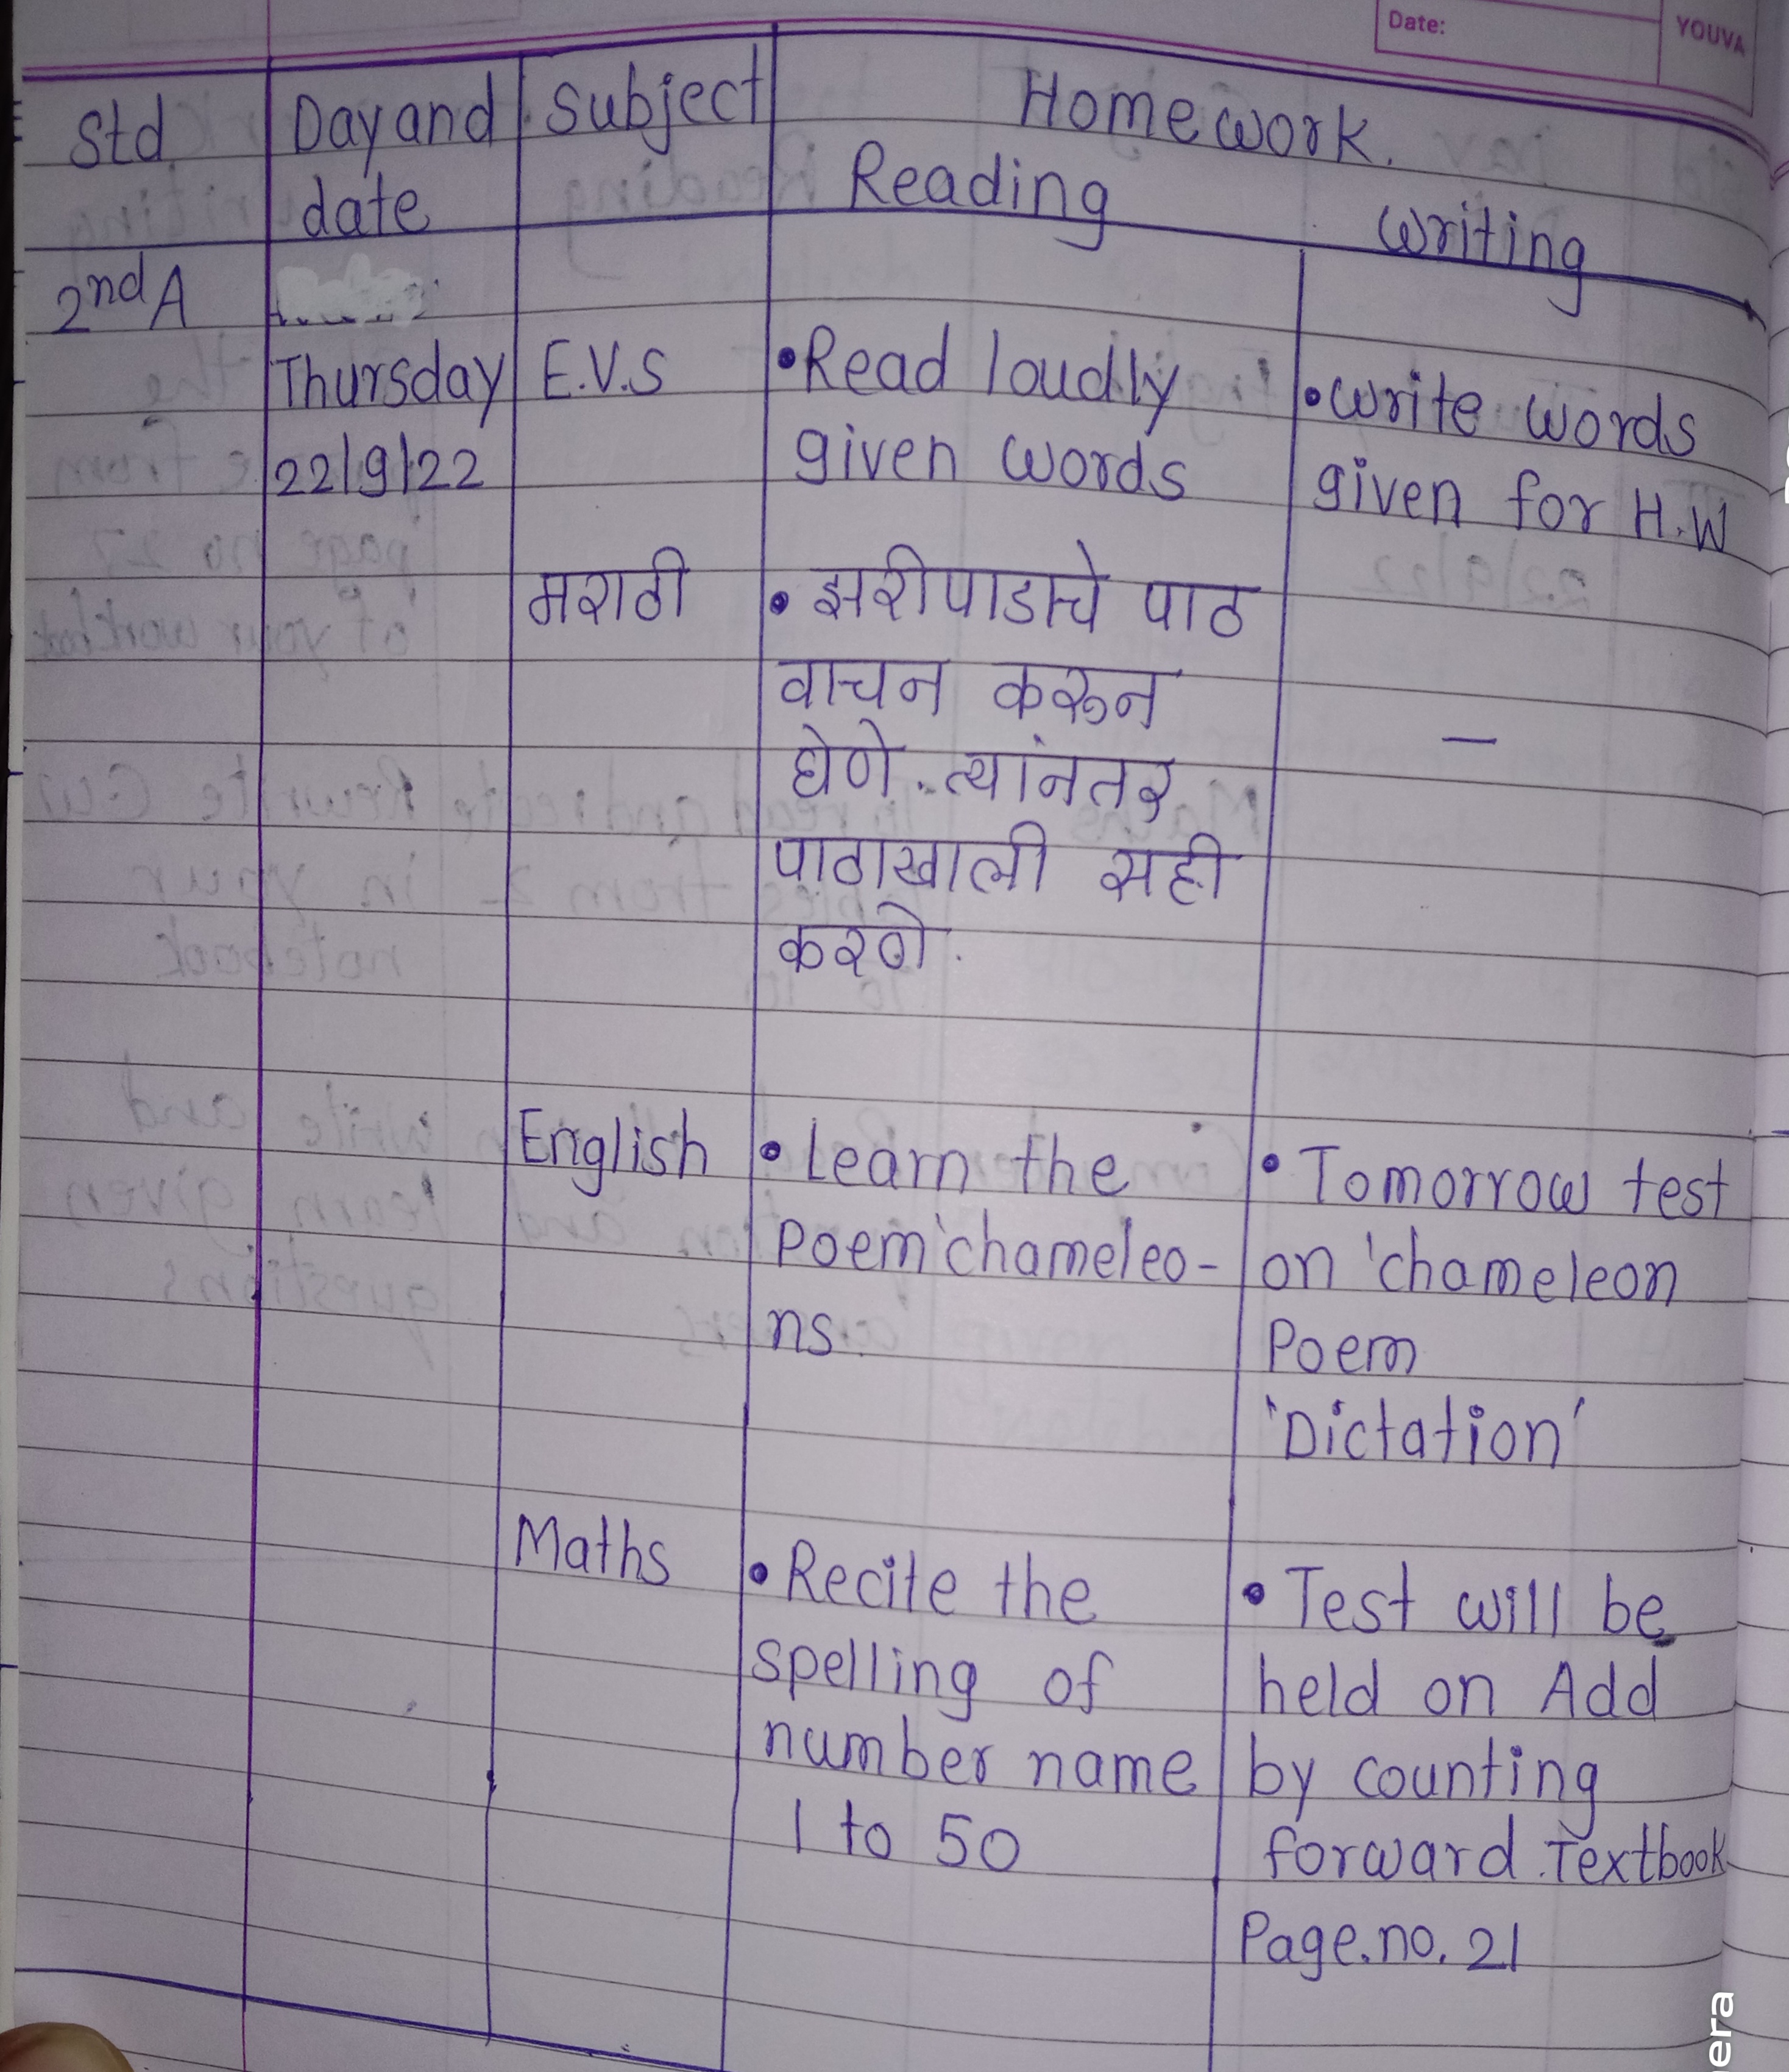 Date:
YOUVA
Std
Day and
date
Subject
Homework.
Reading
Writing
2nd A
Thursday
22/9/22
E.V.S
• Read loudly
given words
• Write words
given for H.W
मराठी
• झरीपाडाचे पाठ
वाचन करून
घेणे. त्यांनतर
पाठाखाली सही
करणे.
—
English
• Learn the
Poem 'chameleo-
ns.
• Tomorrow test
on 'chameleon
Poem
'Dictation'
Maths
• Recite the
spelling of
number name
1 to 50
• Test will be
held on Add
by counting
forward. Textbook
Page.no. 21
era